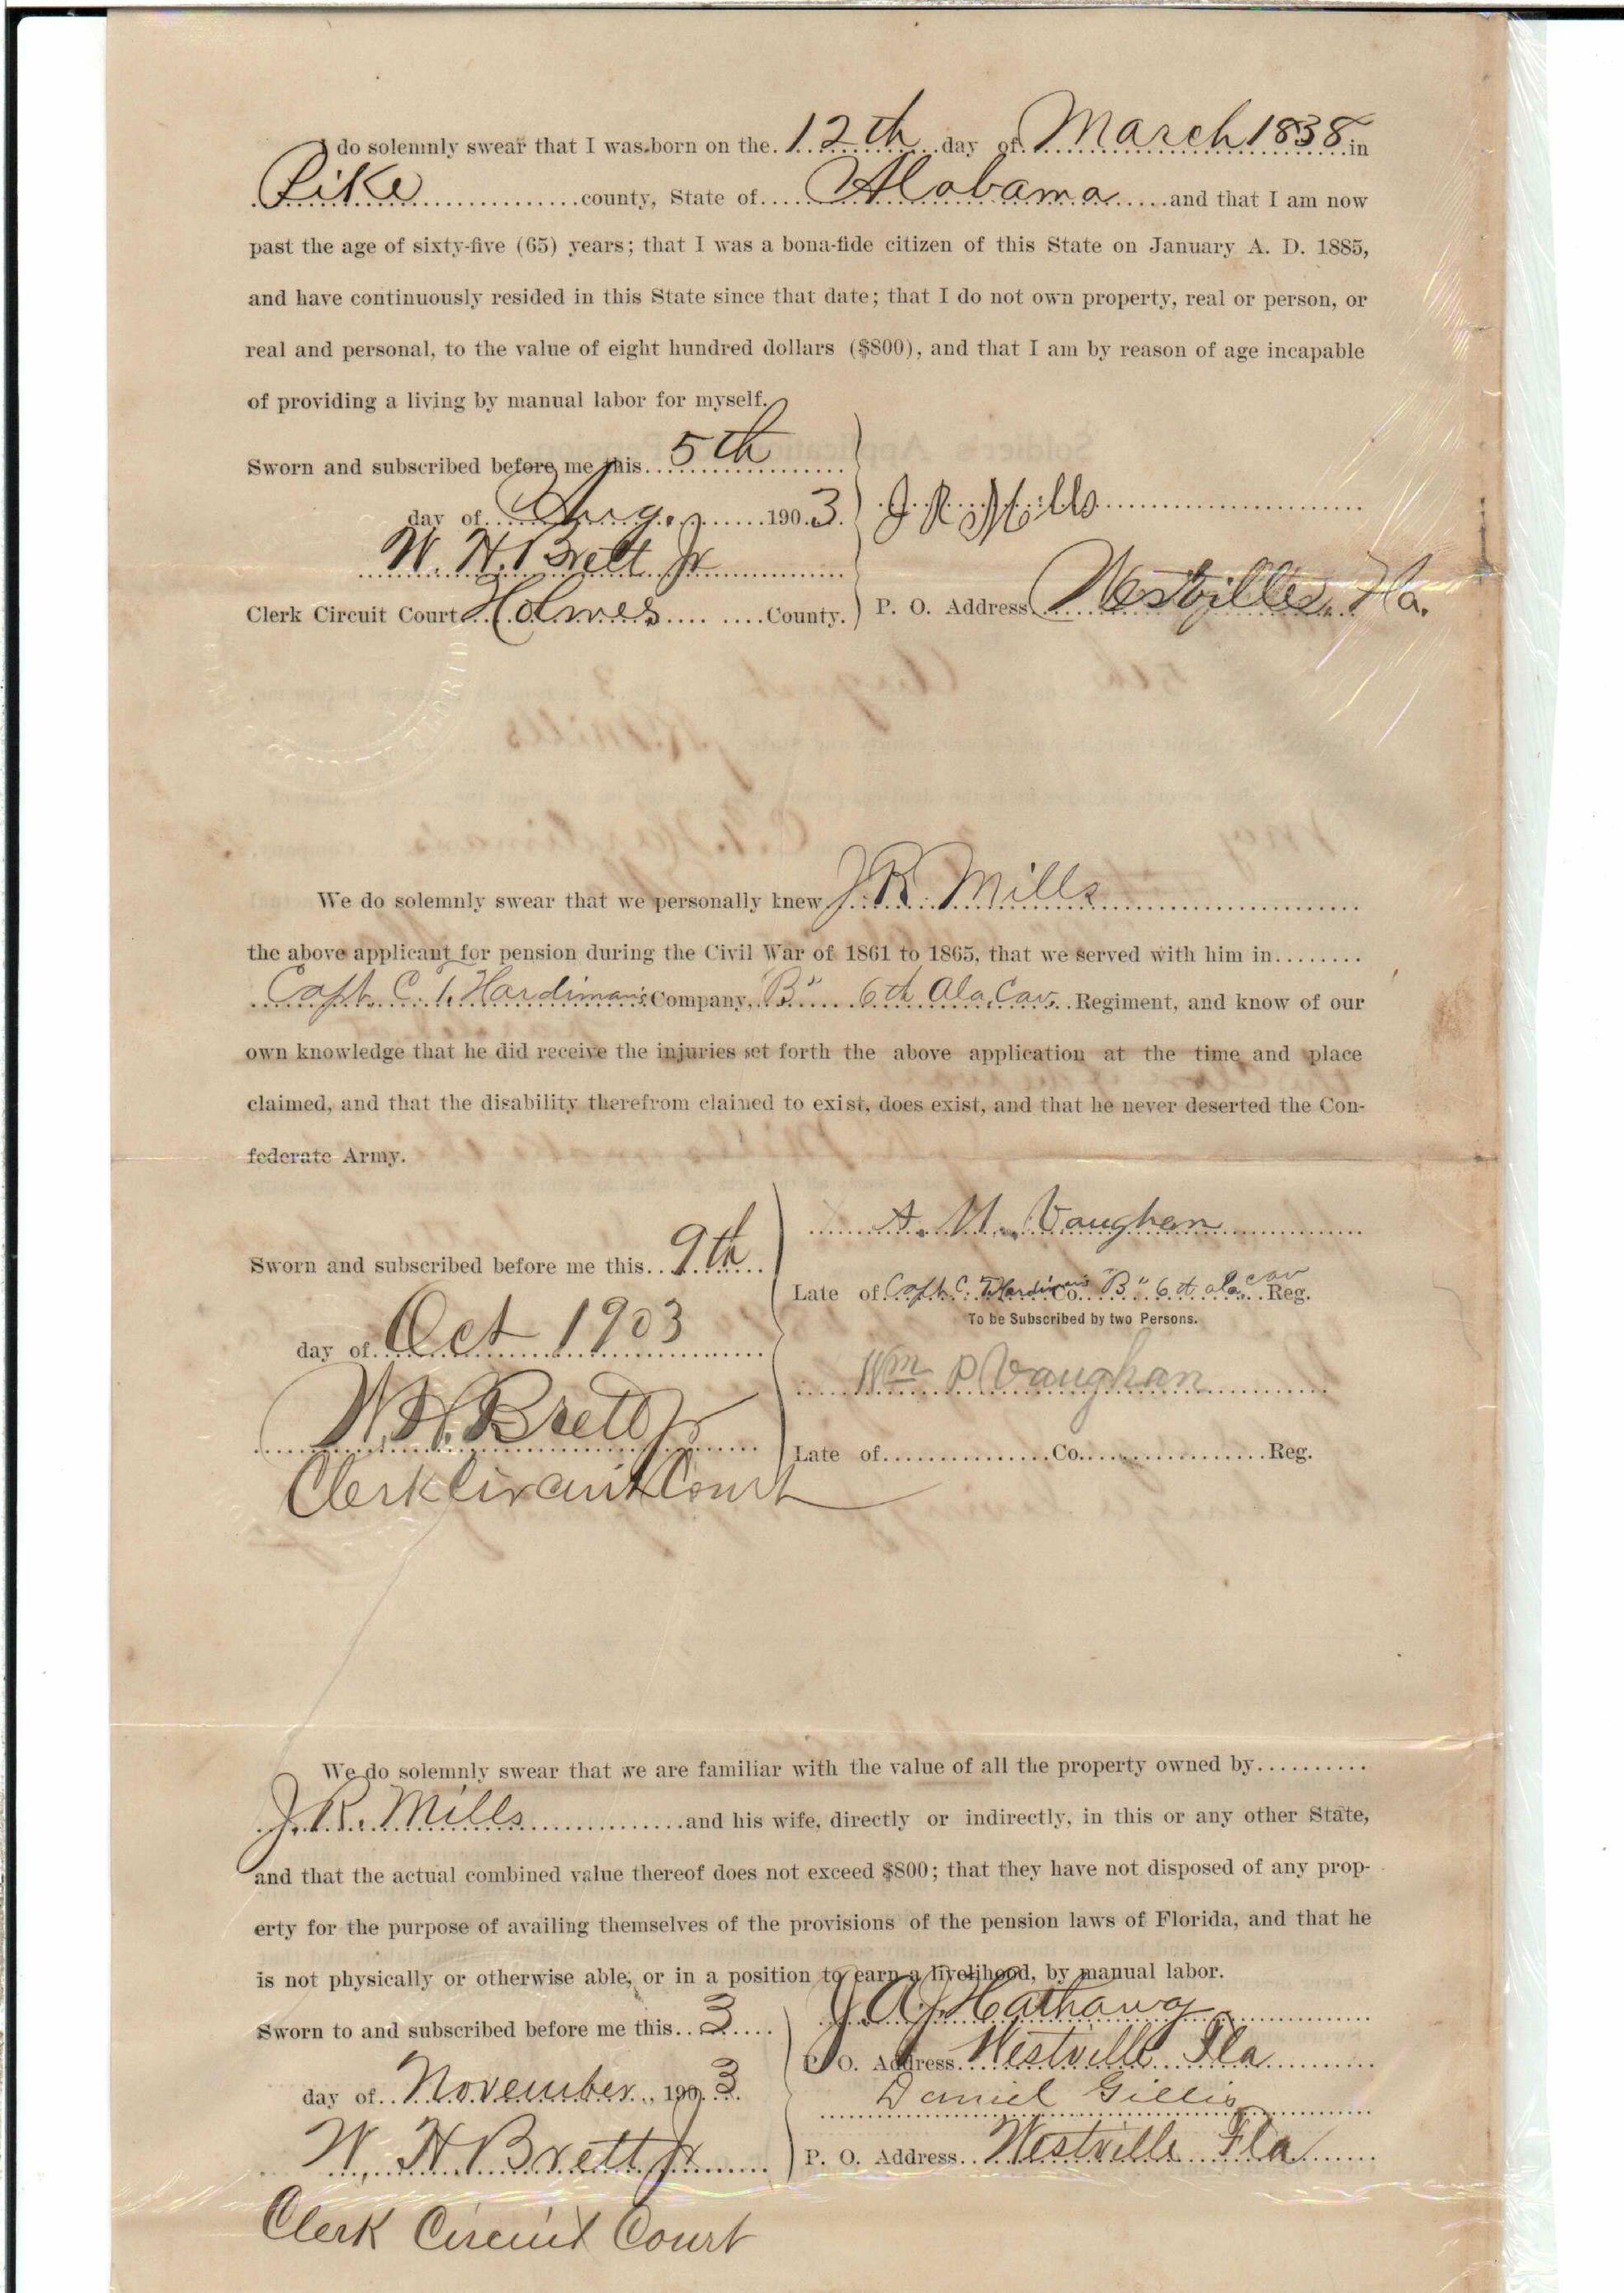 I do solemnly swear that I was born on the 12th day of March 1838 in
Pike county, State of Alabama and that I am now
past the age of sixty-five (65) years; that I was a bona-fide citizen of this State on January A. D. 1885,
and have continuously resided in this State since that date; that I do not own property, real or person, or
real and personal, to the value of eight hundred dollars ($800), and that I am by reason of age incapable
of providing a living by manual labor for myself.
Sworn and subscribed before me this 5th
day of Aug. 1903.
J R Mills
W. H. Brett Jr
Clerk Circuit Court Holmes County.
P. O. Address Westville, Fla.
We do solemnly swear that we personally knew J. R. Mills
the above applicant for pension during the Civil War of 1861 to 1865, that we served with him in
Capt. C. T. Hardiman's Company "B" 6th Ala. Cav. Regiment, and know of our
own knowledge that he did receive the injuries set forth the above application at the time and place
claimed, and that the disability therefrom claimed to exist, does exist, and that he never deserted the Con-
federate Army.
A. M. Vaughan
Sworn and subscribed before me this 9th
Late of Capt. C. T. Hardiman's Co. "B" 6th Ala. Cav Reg.
To be Subscribed by two Persons.
day of Oct 1903
Wm P Vaughan
W. H. Brett Jr
Late of Co. Reg.
Clerk Circuit Court
We do solemnly swear that we are familiar with the value of all the property owned by
J. R. Mills and his wife, directly or indirectly, in this or any other State,
and that the actual combined value thereof does not exceed $800; that they have not disposed of any prop-
erty for the purpose of availing themselves of the provisions of the pension laws of Florida, and that he
is not physically or otherwise able, or in a position to earn a livelihood, by manual labor.
J. A. J. Hathaway
Sworn to and subscribed before me this 3
P. O. Address Westville Fla
day of November, 1903.
Daniel Gillis
W. H Brett Jr
P. O. Address Westville Fla
Clerk Circuit Court